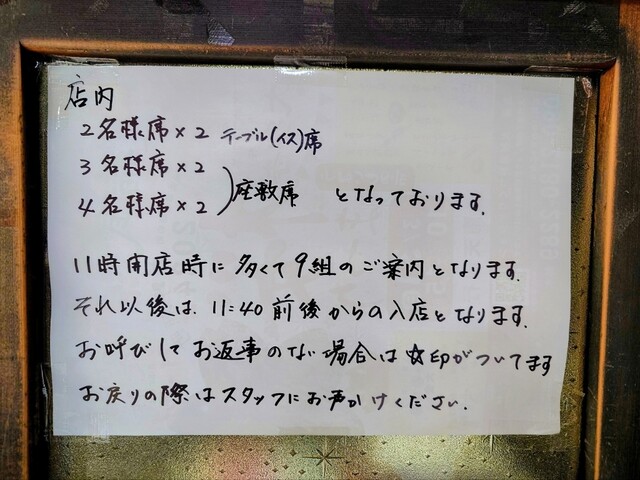 店内
2名様席×2 テーブル(イス)席
3名様席×2
4名様席×2 )座敷席 となっております.
11時開店時に多くて9組のご案内となります.
それ以後は、11:40前後からの入店となります.
お呼びしてお返事のない場合は☆印がついてます
お戻りの際はスタッフにお声かけください.